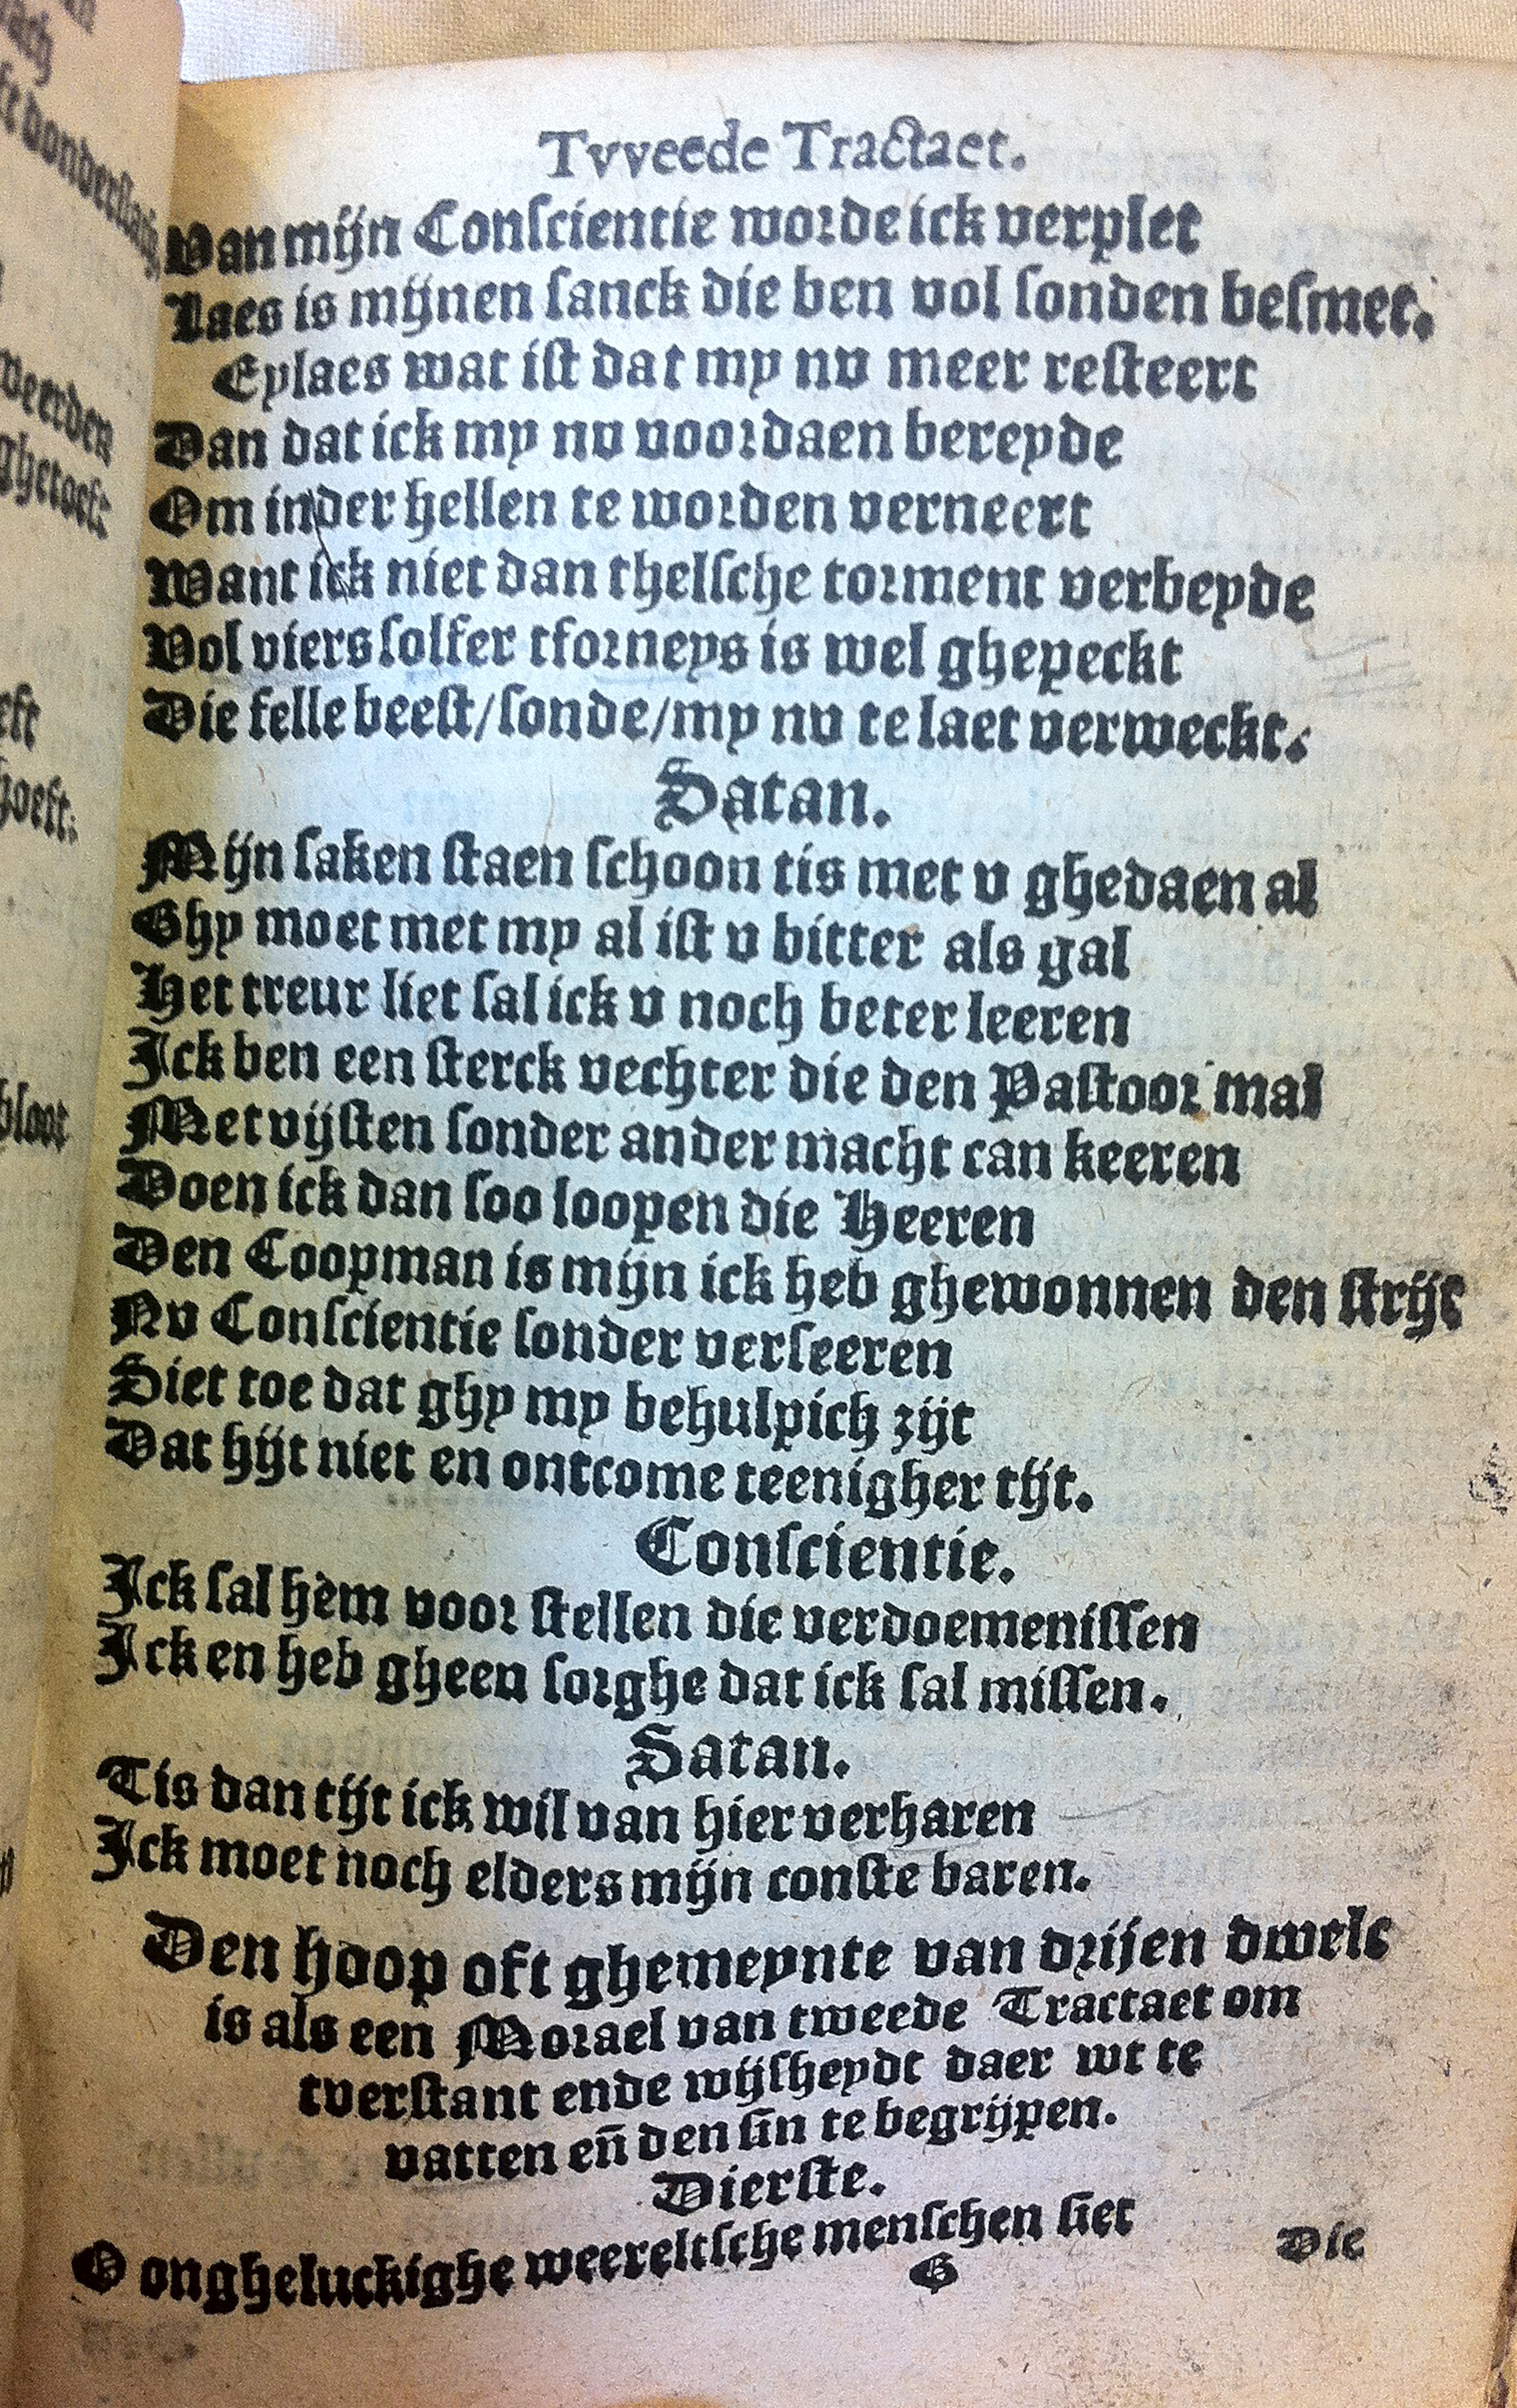 Tvveede Tractaet.
Van mijn Conſcientie worde ick verplet
Laes is mijnen ſanck die ben vol ſonden beſmet.
Eylaes wat iſt dat my nv meer reſteert
Dan dat ick my nv voordaen bereyde
Om inder hellen te worden verneert
Want ick niet dan thelſche torment verbeyde
Vol viers ſolfer tforneys is wel ghepeckt
Die felle beeſt/ſonde/my nv te laet verweckt.
Satan.
Mijn ſaken ſtaen ſchoon tis met v ghedaen al
Ghy moet met my al iſt v bitter als gal
Het treur liet ſal ick v noch beter leeren
Ick ben een ſterck vechter die den Paſtoor mal
Met vijſten ſonder ander macht can keeren
Doen ick dan ſoo loopen die Heeren
Den Coopman is mijn ick heb ghewonnen den ſtrijt
Nv Conſcientie ſonder verſeeren
Siet toe dat ghy my behulpich zijt
Dat hijt niet en ontcome teenigher tijt.
Conſcientie.
Ick ſal hem voor ſtellen die verdoemeniſſen
Ick en heb gheen ſorghe dat ick ſal miſſen.
Satan.
Tis dan tijt ick wil van hier verharen
Ick moet noch elders mijn conſte baren.
Den hoop oft ghemeynte van drijen dwelc
is als een Morael van tweede Tractaet om
tverſtant ende wijſheydt daer wt te
vatten eñ den ſin te begrijpen.
Dierſte.
O ongheluckighe weereltſche menſchen ſiet
G
Die
donderſtaen
weerden
bloot